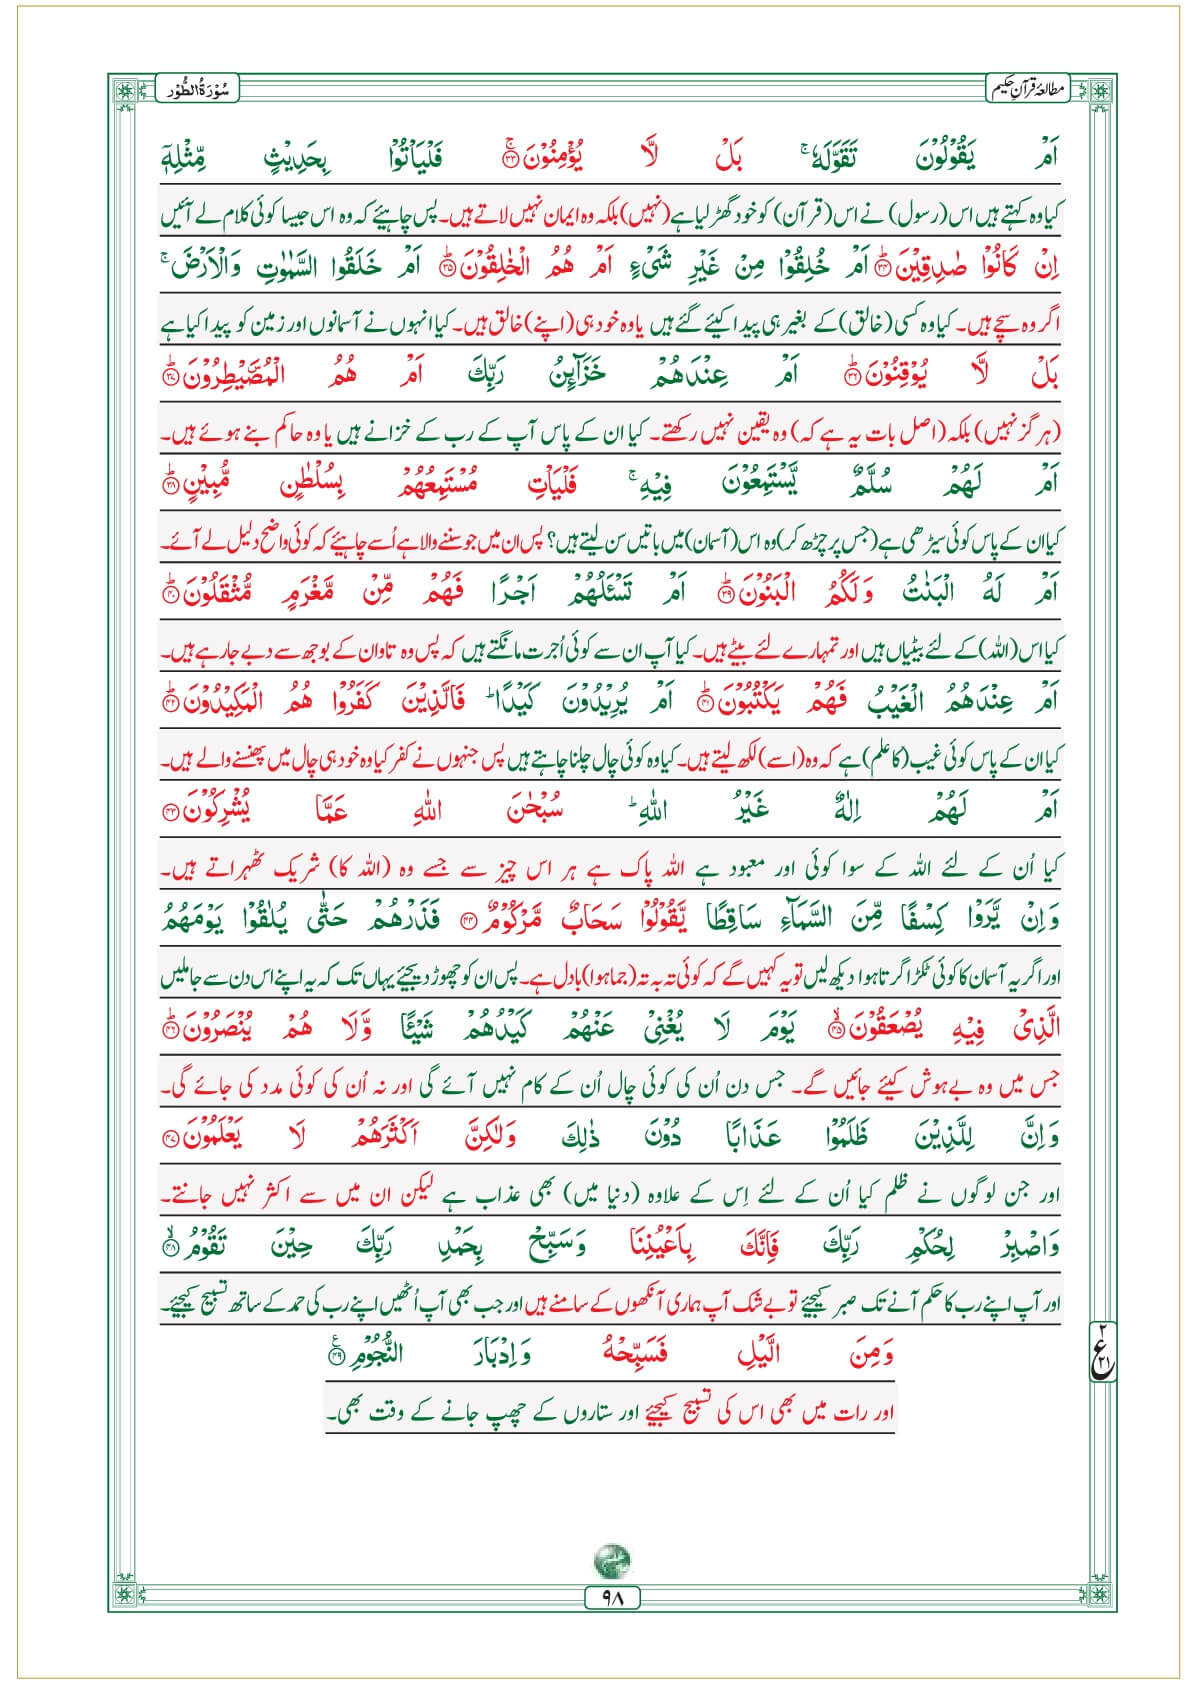 مطالعۂ قرآنِ حکیم
سُوْرَۃُ الطُّوْر
اَمْ يَقُوْلُوْنَ تَقَوَّلَهٗ ۚ بَلْ لَّا يُؤْمِنُوْنَ ۚ﴿۳۳﴾ فَلْيَاْتُوْا بِحَدِيْثٍ مِّثْلِهٖٓ
کیا وہ کہتے ہیں اس (رسول) نے اس (قرآن) کو خود گھڑ لیا ہے (نہیں) بلکہ وہ ایمان نہیں لاتے ہیں۔ پس چاہیئے کہ وہ اس جیسا کوئی کلام لے آئیں
اِنْ كَانُوْا صٰدِقِيْنَ ؕ﴿۳۴﴾ اَمْ خُلِقُوْا مِنْ غَيْرِ شَيْءٍ اَمْ هُمُ الْخٰلِقُوْنَ ؕ﴿۳۵﴾ اَمْ خَلَقُوا السَّمٰوٰتِ وَالْاَرْضَ ۚ
اگر وہ سچے ہیں۔ کیا وہ کسی (خالق) کے بغیر ہی پیدا کیئے گئے ہیں یا وہ خود ہی (اپنے) خالق ہیں۔ کیا انہوں نے آسمانوں اور زمین کو پیدا کیا ہے
بَلْ لَّا يُوْقِنُوْنَ ؕ﴿۳۶﴾ اَمْ عِنْدَهُمْ خَزَآىِٕنُ رَبِّكَ اَمْ هُمُ الْمُصَۜيْطِرُوْنَ ؕ﴿۳۷﴾
(ہرگز نہیں) بلکہ (اصل بات یہ ہے کہ) وہ یقین نہیں رکھتے۔ کیا ان کے پاس آپ کے رب کے خزانے ہیں یا وہ حاکم بنے ہوئے ہیں۔
اَمْ لَهُمْ سُلَّمٌ يَّسْتَمِعُوْنَ فِيْهِ ۚ فَلْيَاْتِ مُسْتَمِعُهُمْ بِسُلْطٰنٍ مُّبِيْنٍ ؕ﴿۳۸﴾
کیا ان کے پاس کوئی سیڑھی ہے (جس پر چڑھ کر) وہ اس (آسمان) میں باتیں سن لیتے ہیں؟ پس ان میں جو سننے والا ہے اُسے چاہیئے کہ کوئی واضح دلیل لے آئے۔
اَمْ لَهُ الْبَنٰتُ وَلَكُمُ الْبَنُوْنَ ؕ﴿۳۹﴾ اَمْ تَسْـَٔلُهُمْ اَجْرًا فَهُمْ مِّنْ مَّغْرَمٍ مُّثْقَلُوْنَ ؕ﴿۴۰﴾
کیا اس (اللہ) کے لئے بیٹیاں ہیں اور تمہارے لئے بیٹے ہیں۔ کیا آپ ان سے کوئی اُجرت مانگتے ہیں کہ پس وہ تاوان کے بوجھ سے دبے جارہے ہیں۔
اَمْ عِنْدَهُمُ الْغَيْبُ فَهُمْ يَكْتُبُوْنَ ؕ﴿۴۱﴾ اَمْ يُرِيْدُوْنَ كَيْدًا ؕ فَالَّذِيْنَ كَفَرُوْا هُمُ الْمَكِيْدُوْنَ ؕ﴿۴۲﴾
کیا ان کے پاس کوئی غیب (کا علم) ہے کہ وہ (اسے) لکھ لیتے ہیں۔ کیا وہ کوئی چال چلنا چاہتے ہیں پس جنہوں نے کفر کیا وہ خود ہی چال میں پھنسنے والے ہیں۔
اَمْ لَهُمْ اِلٰهٌ غَيْرُ اللّٰهِ ؕ سُبْحٰنَ اللّٰهِ عَمَّا يُشْرِكُوْنَ ﴿۴۳﴾
کیا اُن کے لئے اللہ کے سوا کوئی اور معبود ہے اللہ پاک ہے ہر اس چیز سے جسے وہ (اللہ کا) شریک ٹھہراتے ہیں۔
وَاِنْ يَّرَوْا كِسْفًا مِّنَ السَّمَآءِ سَاقِطًا يَّقُوْلُوْا سَحَابٌ مَّرْكُوْمٌ ﴿۴۴﴾ فَذَرْهُمْ حَتّٰى يُلٰقُوْا يَوْمَهُمُ
اور اگر یہ آسمان کا کوئی ٹکڑا گرتا ہوا دیکھ لیں تو یہ کہیں گے کہ کوئی تہ بہ تہ (جما ہوا) بادل ہے۔ پس ان کو چھوڑ دیجئے یہاں تک کہ یہ اپنے اس دن سے جاملیں
الَّذِيْ فِيْهِ يُصْعَقُوْنَ ۙ﴿۴۵﴾ يَوْمَ لَا يُغْنِيْ عَنْهُمْ كَيْدُهُمْ شَيْـًٔا وَّلَا هُمْ يُنْصَرُوْنَ ؕ﴿۴۶﴾
جس میں وہ بے ہوش کیئے جائیں گے۔ جس دن اُن کی کوئی چال اُن کے کام نہیں آئے گی اور نہ اُن کی کوئی مدد کی جائے گی۔
وَاِنَّ لِلَّذِيْنَ ظَلَمُوْا عَذَابًا دُوْنَ ذٰلِكَ وَلٰكِنَّ اَكْثَرَهُمْ لَا يَعْلَمُوْنَ ﴿۴۷﴾
اور جن لوگوں نے ظلم کیا اُن کے لئے اِس کے علاوہ (دنیا میں) بھی عذاب ہے لیکن ان میں سے اکثر نہیں جانتے۔
وَاصْبِرْ لِحُكْمِ رَبِّكَ فَاِنَّكَ بِاَعْيُنِنَا وَسَبِّحْ بِحَمْدِ رَبِّكَ حِيْنَ تَقُوْمُ ۙ﴿۴۸﴾
اور آپ اپنے رب کا حکم آنے تک صبر کیجیئے تو بے شک آپ ہماری آنکھوں کے سامنے ہیں اور جب بھی آپ اُٹھیں اپنے رب کی حمد کے ساتھ تسبیح کیجیئے۔
وَمِنَ الَّيْلِ فَسَبِّحْهُ وَاِدْبَارَ النُّجُوْمِ ﴿۴۹﴾ع
۲ ع ۲۱
اور رات میں بھی اس کی تسبیح کیجیئے اور ستاروں کے چھپ جانے کے وقت بھی۔
۹۸